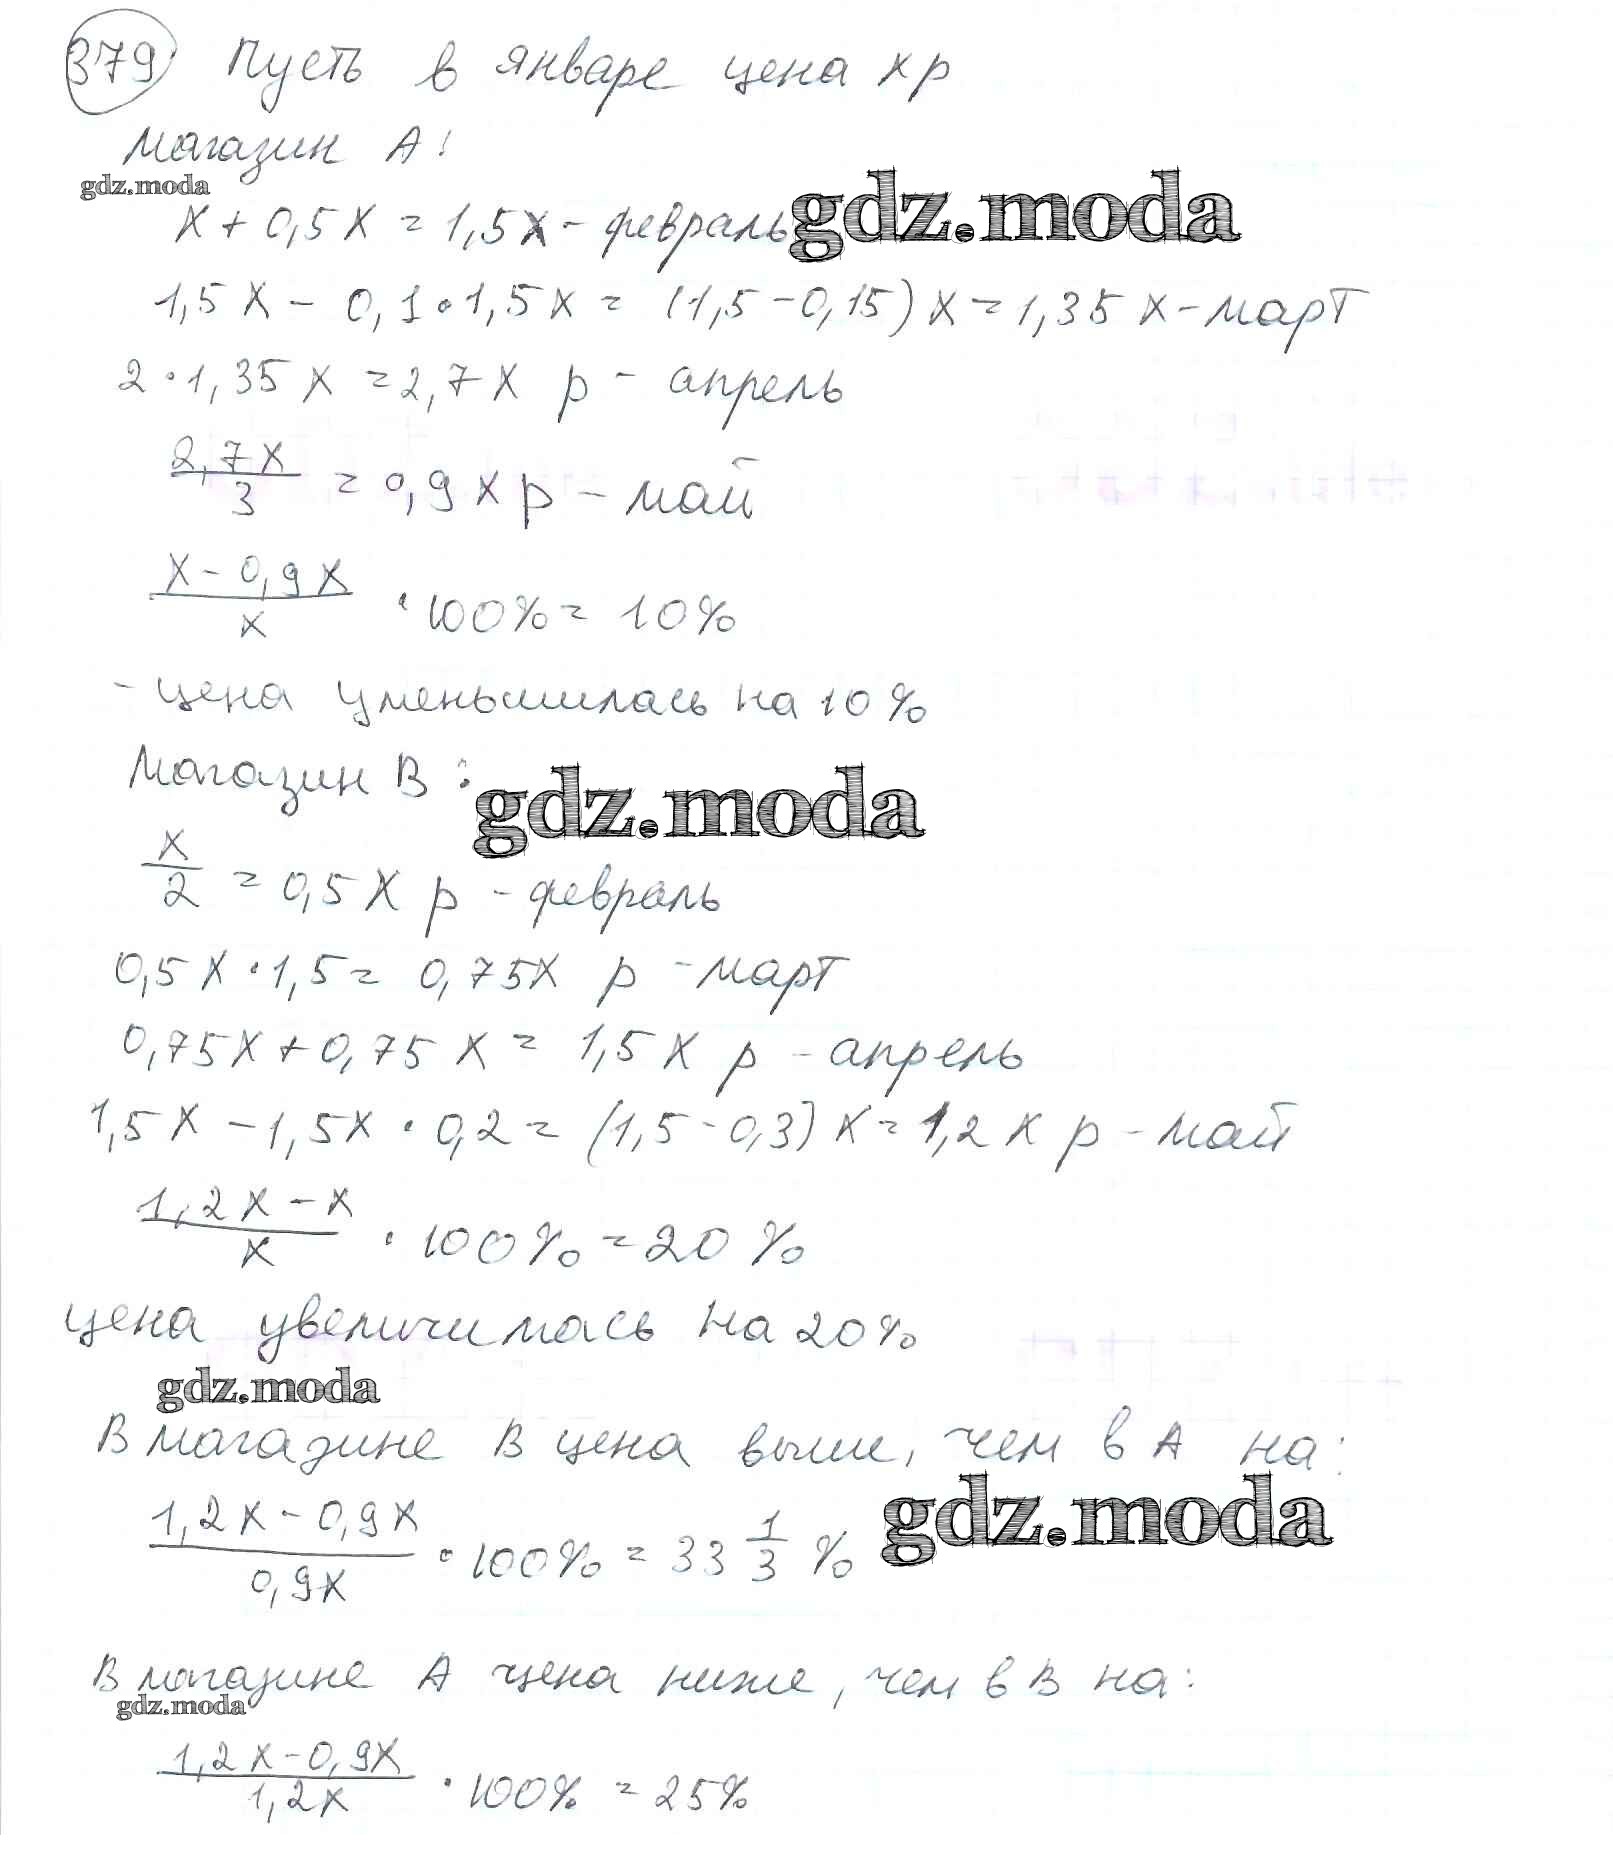 379 Пусть в январе цена x р
Магазин А:
gdz.moda
x + 0,5x = 1,5x - февраль
gdz.moda
1,5x - 0,1•1,5x = (1,5-0,15)x = 1,35x - март
2•1,35x = 2,7x р - апрель
2,7x/3 = 0,9x р - май
(x - 0,9x)/x • 100% = 10%
- цена уменьшилась на 10%
Магазин В:
gdz.moda
x/2 = 0,5x р - февраль
0,5x•1,5 = 0,75x р - март
0,75x + 0,75x = 1,5x р - апрель
1,5x - 1,5x • 0,2 = (1,5-0,3)x = 1,2x р - май
(1,2x - x)/x • 100% = 20%
цена увеличилась на 20%
gdz.moda
В магазине В цена выше, чем в А на:
(1,2x - 0,9x)/0,9x • 100% = 33 1/3 %
gdz.moda
В магазине А цена ниже, чем в В на:
gdz.moda
(1,2x - 0,9x)/1,2x • 100% = 25%